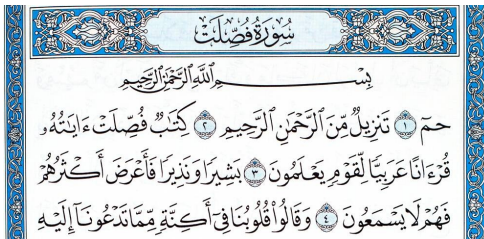 سُورَةُ فُصِّلَتْ
بِسْمِ ٱللَّهِ ٱلرَّحْمَٰنِ ٱلرَّحِيمِ
حمٓ ١ تَنزِيلٌ مِّنَ ٱلرَّحْمَٰنِ ٱلرَّحِيمِ ٢ كِتَٰبٌ فُصِّلَتْ ءَايَٰتُهُۥ
قُرْءَانًا عَرَبِيًّا لِّقَوْمٍ يَعْلَمُونَ ٣ بَشِيرًا وَنَذِيرًا فَأَعْرَضَ أَكْثَرُهُمْ
فَهُمْ لَا يَسْمَعُونَ ٤ وَقَالُوا۟ قُلُوبُنَا فِىٓ أَكِنَّةٍ مِّمَّا تَدْعُونَآ إِلَيْهِ